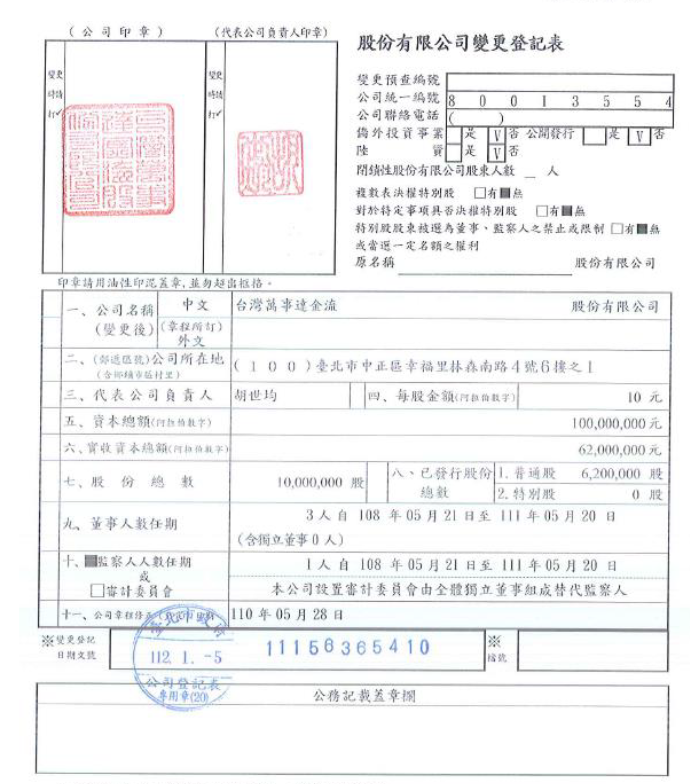 (公司印章)
(代表公司負責人印章)
股份有限公司變更登記表
變更時請打✓
變更時請打✓
變更預查編號
公司統一編號 80013554
公司聯絡電話 ( )
僑外投資事業 是 V 否 公開發行 是 V 否
陸資 是 V 否
閉鎖性股份有限公司股東人數 __ 人
複數表決權特別股 □有■無
對於特定事項具否決權特別股 □有■無
特別股股東被選為董事、監察人之禁止或限制 □有■無
或當選一定名額之權利
原名稱 股份有限公司
印章請用油性印泥蓋章,並勿超出框格。
一、公司名稱 中文 台灣萬事達金流 股份有限公司
(變更後) (章程所訂)
外文
二、(郵遞區號)公司所在地 (100)臺北市中正區幸福里林森南路4號6樓之1
(含鄉鎮市區村里)
三、代表公司負責人 胡世均 四、每股金額(阿拉伯數字) 10 元
五、資本總額(阿拉伯數字) 100,000,000 元
六、實收資本總額(阿拉伯數字) 62,000,000 元
七、股份總數 10,000,000 股 八、已發行股份總數 1.普通股 6,200,000 股
2.特別股 0 股
九、董事人數任期 3人自 108 年 05 月 21 日至 111 年 05 月 20 日
(含獨立董事 0 人)
十、■監察人人數任期 1人自 108 年 05 月 21 日至 111 年 05 月 20 日
或
□審計委員會 本公司設置審計委員會由全體獨立董事組成替代監察人
十一、公司章程修正 110 年 05 月 28 日
臺北市政府
112. 1. -5
公司登記表
專用章(20)
※變更登記日期文號 11156365410 ※檔號
公務記載蓋章欄